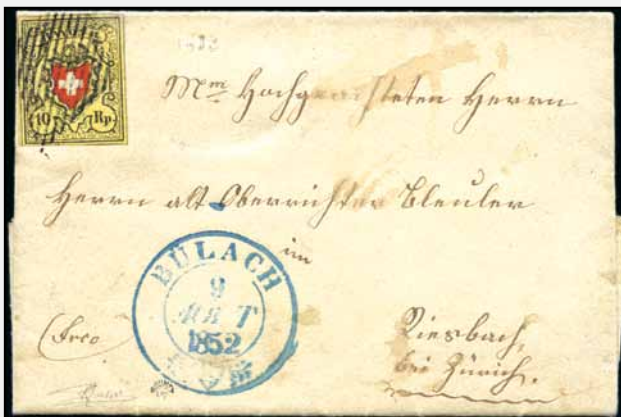 10 Rp.
Mm Hochgeachteten Herrn
Herrn alt Oberrichter Bleuler
im
BÜLACH
9
1852
Frco
Riesbach,
bei Zürich.